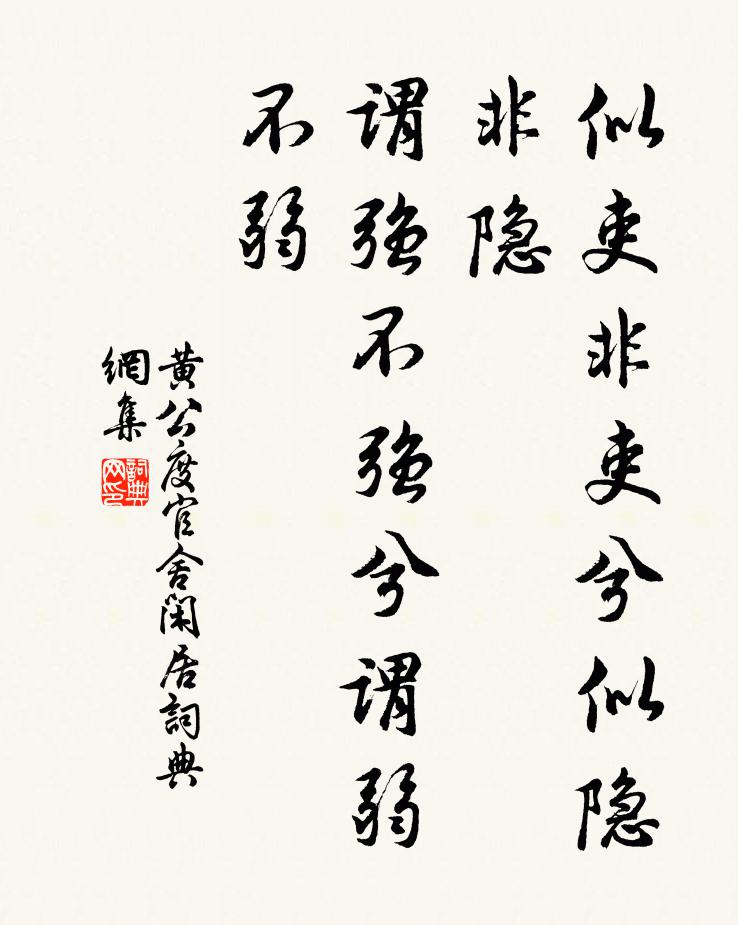 似吏非吏兮似隐
非隐
谓強不強兮谓弱
不弱
黄公度官舍閑居詞典
網集
詞典
网印